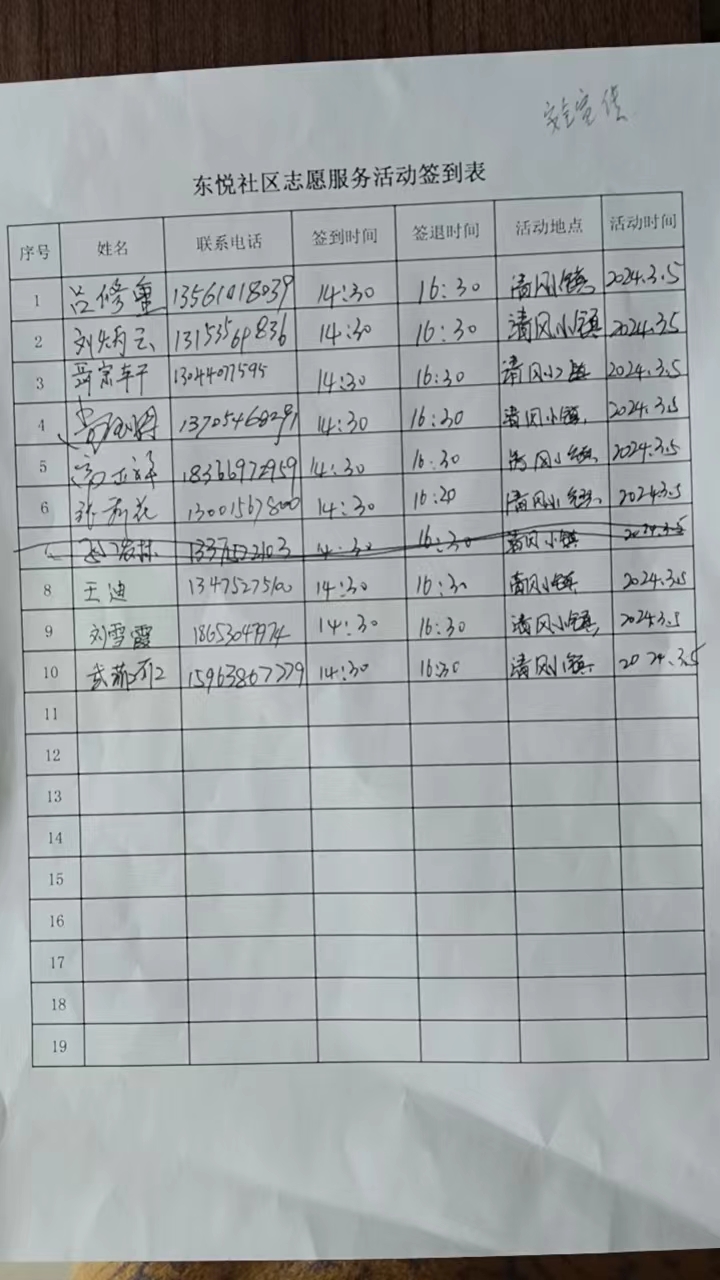 安全宣传
东悦社区志愿服务活动签到表
序号 姓名 联系电话 签到时间 签退时间 活动地点 活动时间
1 吕修重 13561018039 14:30 16:30 清风小镇 2024.3.5
2 刘炳云 13153569836 14:30 16:30 清风小镇 2024.3.5
3 13044077595 14:30 16:30 清风小镇 2024.3.5
4 13705468291 14:30 16:30 清风小镇 2024.3.5
5 18366972959 14:30 16:30 清风小镇 2024.3.5
6 张 花 13001567800 14:30 16:20 清风小镇 2024.3.5
14:30 16:30 清风小镇 2024.3.5
8 王迪 13475275100 14:30 16:30 清风小镇 2024.3.5
9 刘雪霞 14:30 16:30 清风小镇 2024.3.5
10 15963867279 14:30 16:30 清风小镇 2024.3.5
11
12
13
14
15
16
17
18
19